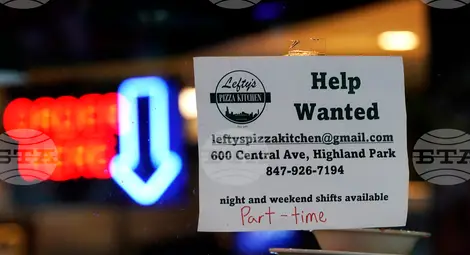 Lefty's
PIZZA KITCHEN
Help
Wanted
leftyspizzakitchen@gmail.com
600 Central Ave, Highland Park
847-926-7194
night and weekend shifts available
Part-time
БТА
БТА